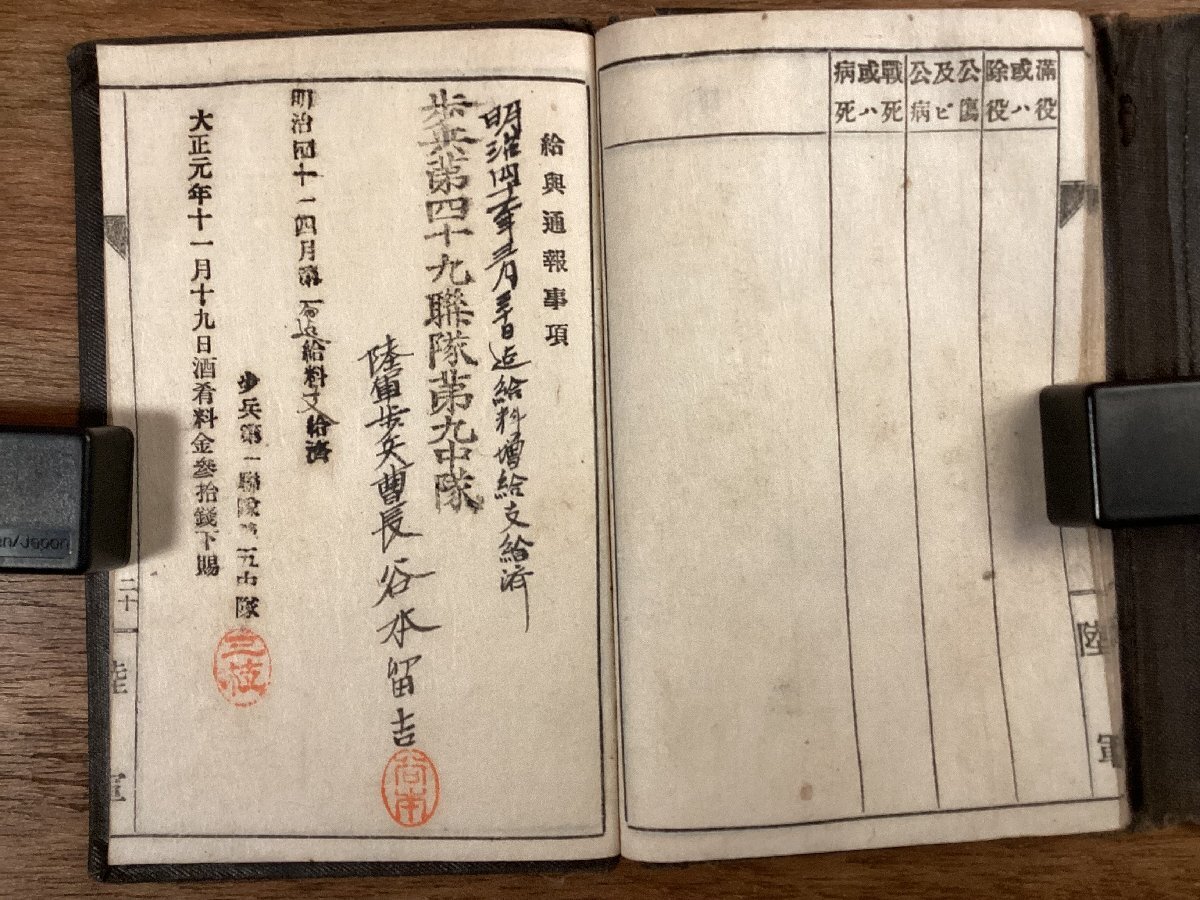 滿役
或ハ
除役
公傷
及ビ
公病
戰死
或ハ
病死
陸軍
給與通報事項
明治四十一年三月三十日迄給料增給支給濟
步兵第四十九聯隊第九中隊
陸軍步兵曹長 谷水留吉
明治四十一 四月 第一
給料支給濟
步兵第一聯隊第五中隊
三枝
大正元年十一月十九日酒肴料金叄拾錢下賜
二十一
陸軍